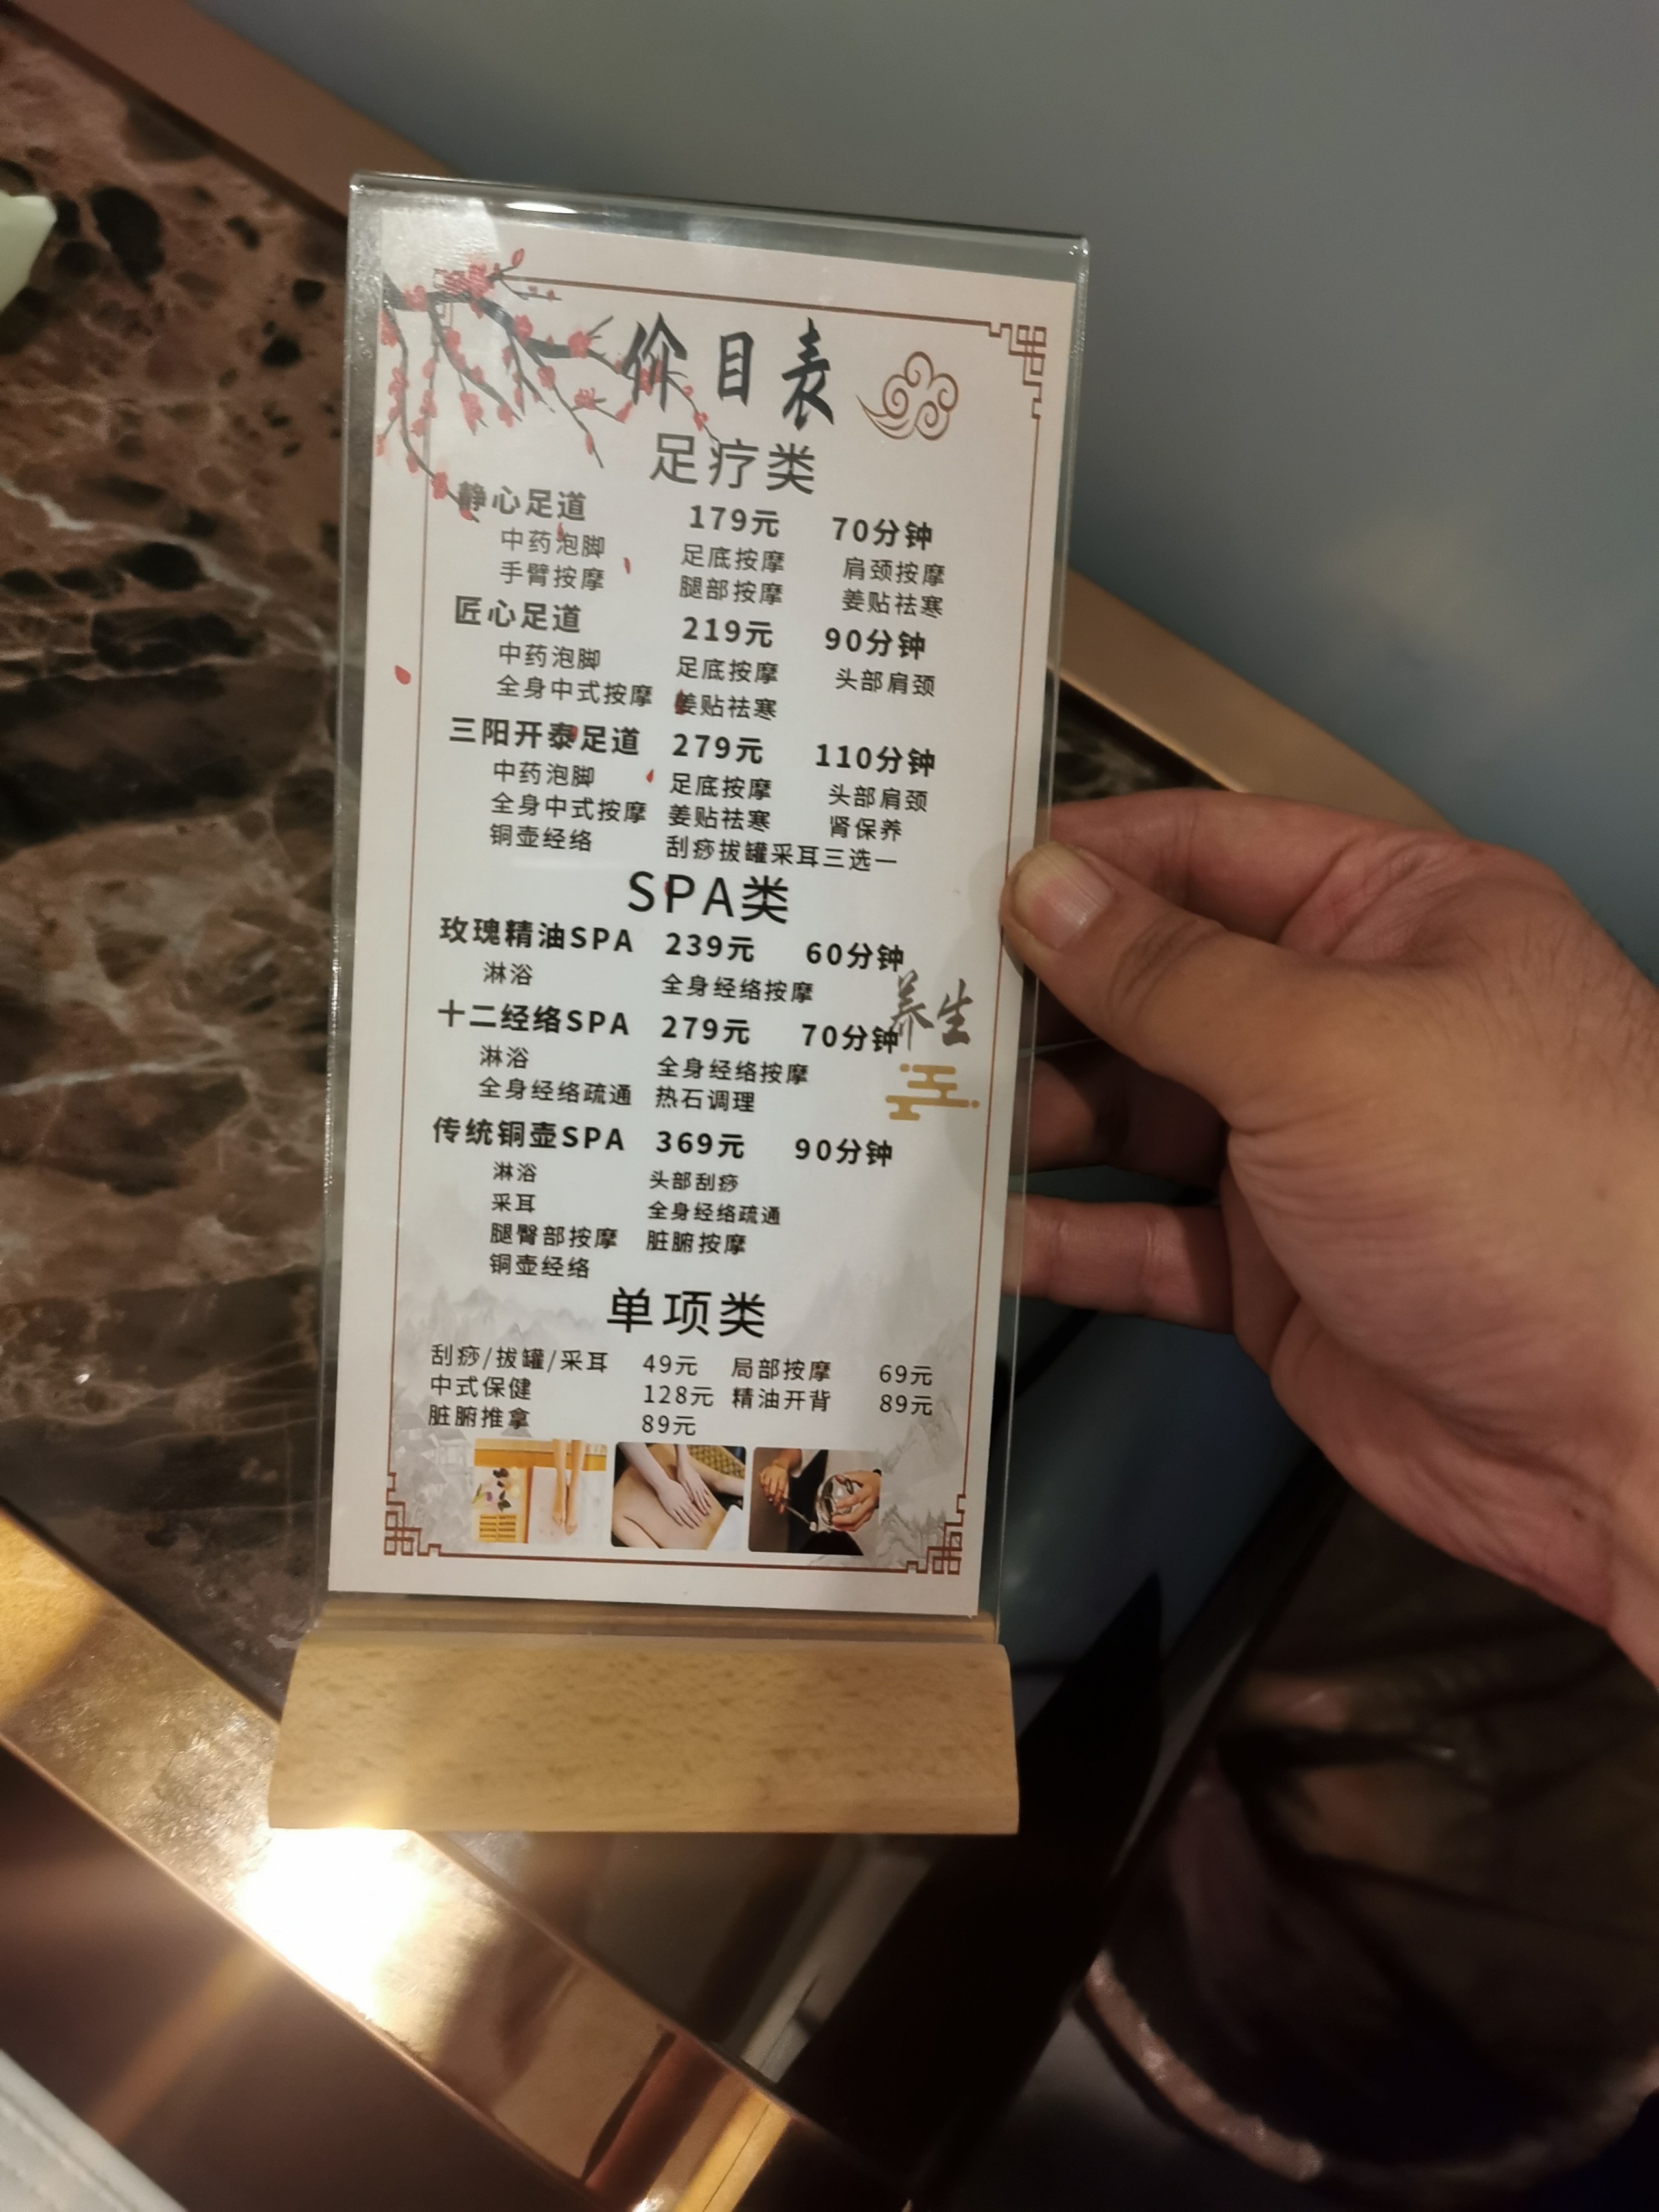 价目表
足疗类
静心足道 179元 70分钟
中药泡脚 足底按摩 肩颈按摩
手臂按摩 腿部按摩 姜贴祛寒
匠心足道 219元 90分钟
中药泡脚 足底按摩 头部肩颈
全身中式按摩 姜贴祛寒
三阳开泰足道 279元 110分钟
中药泡脚 足底按摩 头部肩颈
全身中式按摩 姜贴祛寒 肾保养
铜壶经络 刮痧拔罐采耳三选一
SPA类
玫瑰精油SPA 239元 60分钟
淋浴 全身经络按摩
养生
十二经络SPA 279元 70分钟
淋浴 全身经络按摩
全身经络疏通 热石调理
传统铜壶SPA 369元 90分钟
淋浴 头部刮痧
采耳 全身经络疏通
腿臀部按摩 脏腑按摩
铜壶经络
单项类
刮痧/拔罐/采耳 49元 局部按摩 69元
中式保健 128元 精油开背 89元
脏腑推拿 89元